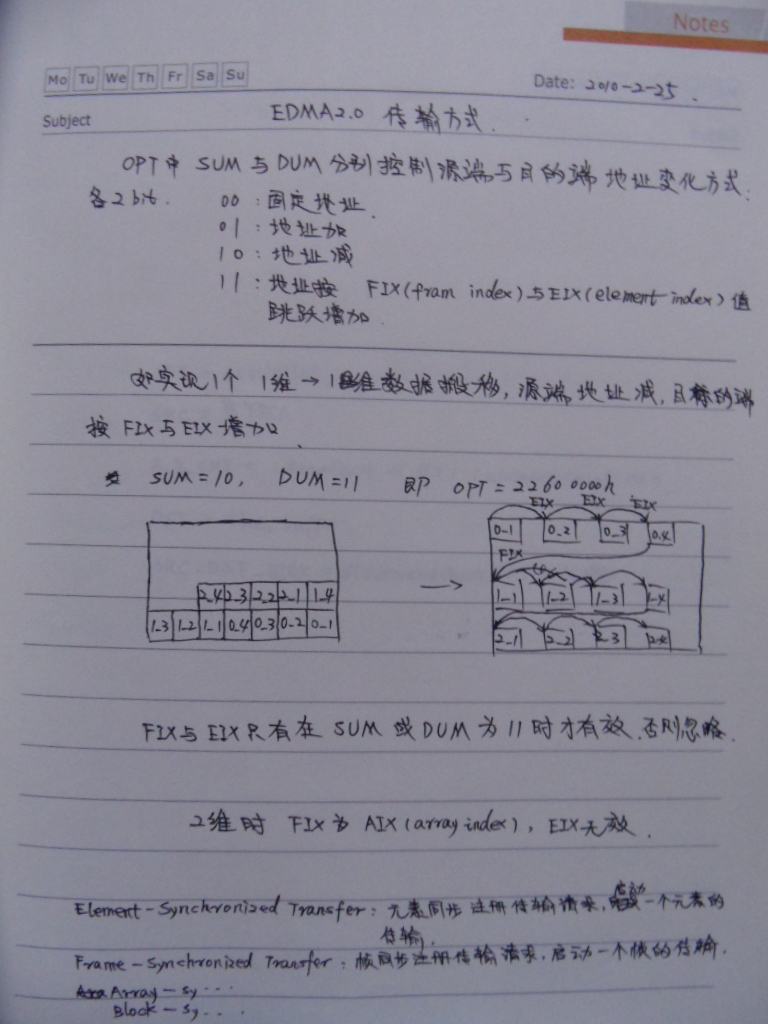 Notes
Mo Tu We Th Fr Sa Su
Date: 2010-2-25.
Subject EDMA2.0 传输方式.
OPT中 SUM 与 DUM 分别控制源端与目的端地址变化方式:
各2bit. 00:固定地址.
01:地址加
10:地址减
11:地址按 FIX(fram index)与EIX(element index)值
跳跃增加.
如实现1个 1维→1维数据搬移,源端地址减,目的端
按 FIX与EIX增加.
SUM=10, DUM=11 即 OPT=22600000h
EIX EIX EIX
0_1 0_2 0_3 0_4
FIX
2_4 2_3 2_2 2_1 1_4 → 1_1 1_2 1_3 1_4
1_3 1_2 1_1 0_4 0_3 0_2 0_1 2_1 2_2 2_3 2_4
FIX与EIX只有在 SUM 或 DUM 为 11时才有效.否则忽略.
2维时 FIX为 AIX(array index), EIX无效.
Element-Synchronized Transfer: 元素同步注册传输请求,启动一个元素的
传输.
Frame-Synchronized Transfer: 帧同步注册传输请求,启动一个帧的传输.
Array-sy...
Block-sy...